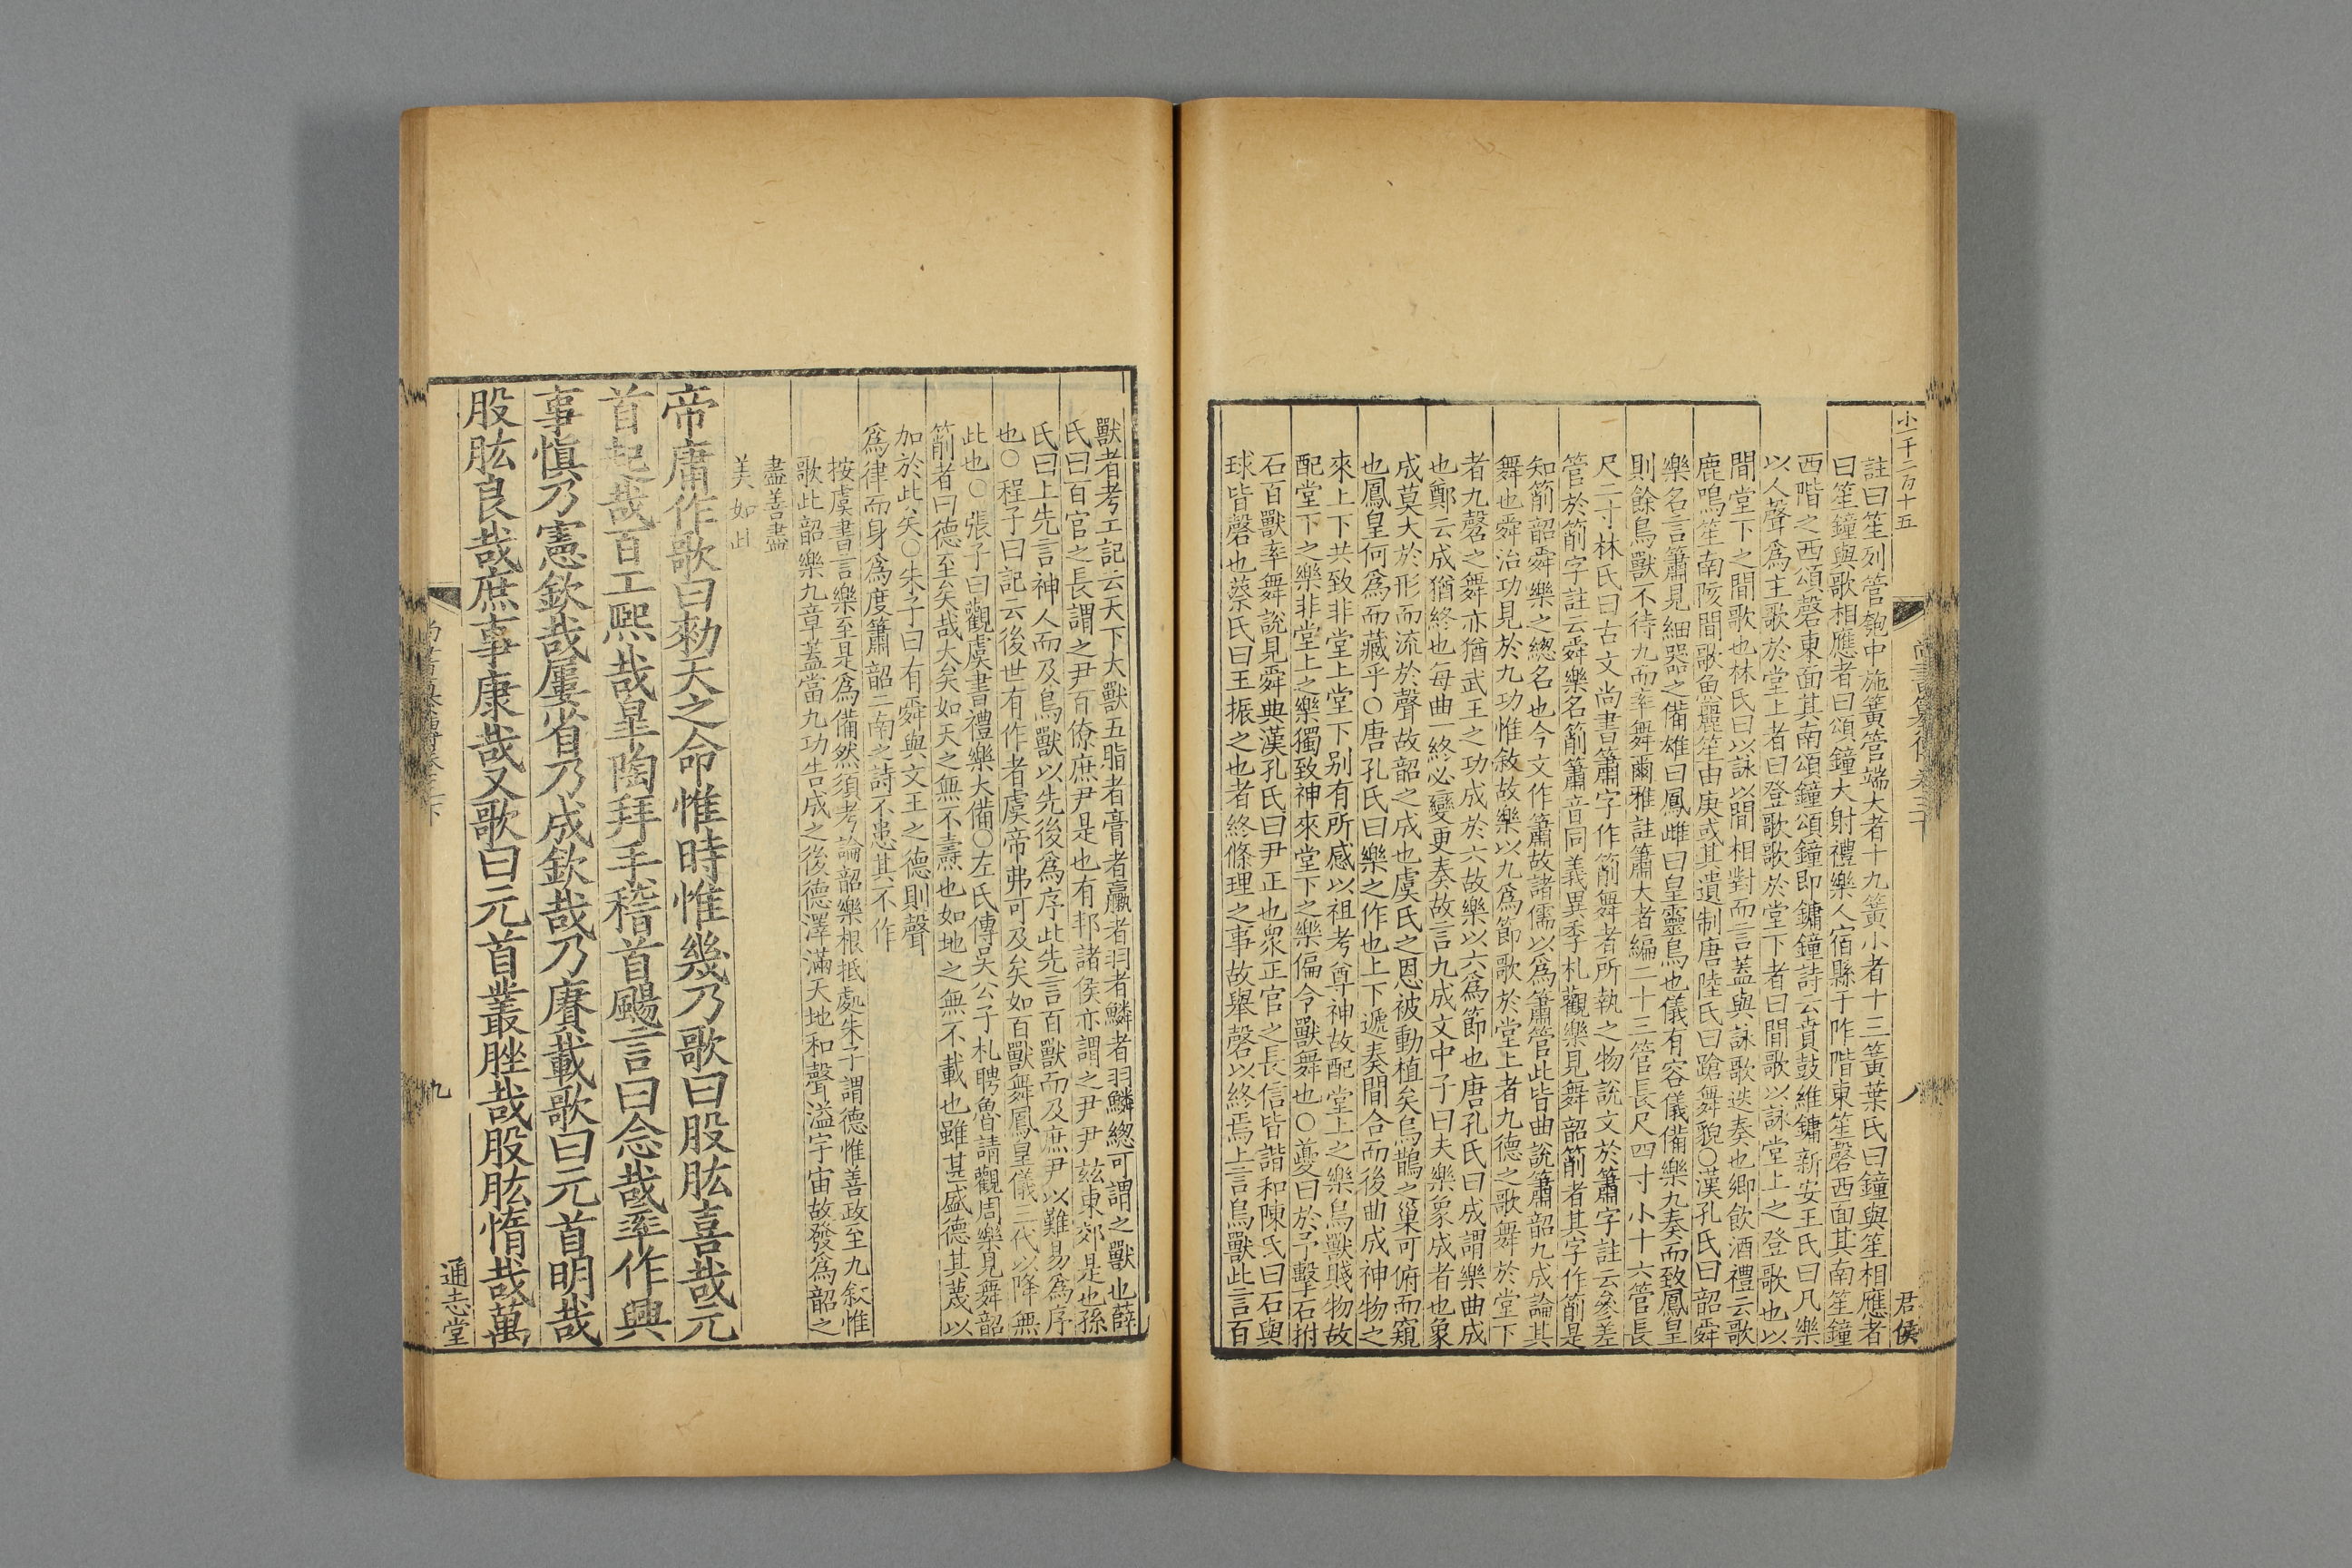 小一千二百十五
尚書纂傳卷三下
八
君侯
註曰笙列管匏中施簧管端大者十九簧小者十三簧葉氏曰鐘與笙相應者
曰笙鐘與歌相應者曰頌鐘大射禮樂人宿縣于阼階東笙磬西面其南笙鐘
西階之西頌磬東面其南頌鐘頌鐘即鏞鐘詩云賁鼓維鏞新安王氏曰凡樂
以人聲爲主歌於堂上者曰登歌歌於堂下者曰間歌以詠堂上之登歌也以
間堂下之間歌也林氏曰以詠以間相對而言蓋與詠歌迭奏也鄉飲酒禮云歌
鹿鳴笙南陔間歌魚麗笙由庚或其遺制唐陸氏曰蹌舞貌○漢孔氏曰韶舜
樂名言簫見細器之備雄曰鳳雌曰皇靈鳥也儀有容儀備樂九奏而致鳳皇
則餘鳥獸不待九而率舞爾雅註簫大者編二十三管長尺四寸小十六管長
尺二寸林氏曰古文尚書簫字作箾舞者所執之物說文於簫字註云參差
管於箾字註云舜樂名箾簫音同義異季札觀樂見舞韶箾者其字作箾是
知箾韶舜樂之總名也今文作簫故諸儒以爲簫管此皆曲說簫韶九成論其
舞也舜治功見於九功惟敘故樂以九爲節歌於堂上者九德之歌舞於堂下
者九磬之舞亦猶武王之功成於六故樂以六爲節也唐孔氏曰成謂樂曲成
也鄭云成猶終也每曲一終必變更奏故言九成文中子曰夫樂象成者也象
成莫大於形而流於聲故韶之成也虞氏之恩被動植矣烏鵲之巢可俯而窺
也鳳皇何爲而藏乎○唐孔氏曰樂之作也上下遞奏間合而後曲成神物之
來上下共致非堂上堂下别有所感以祖考尊神故配堂上之樂鳥獸賤物故
配堂下之樂非堂上之樂獨致神來堂下之樂偏令獸舞也○夔曰於予擊石拊
石百獸率舞說見舜典漢孔氏曰尹正也衆正官之長信皆諧和陳氏曰石與
球皆磬也蔡氏曰玉振之也者終條理之事故舉磬以終焉上言鳥獸此言百
獸者考工記云天下大獸五脂者膏者臝者羽者鱗者羽鱗總可謂之獸也薛
氏曰百官之長謂之尹百僚庶尹是也有邦諸侯亦謂之尹尹玆東郊是也孫
氏曰上先言神人而及鳥獸以先後爲序此先言百獸而及庶尹以難易爲序
也○程子曰記云後世有作者虞帝弗可及矣如百獸舞鳳皇儀三代以降無
此也○張子曰觀虞書禮樂大備○左氏傳吳公子札聘魯請觀周樂見舞韶
箾者曰德至矣哉大矣如天之無不燾也如地之無不載也雖甚盛德其蔑以
加於此矣○朱子曰有舜與文王之德則聲
爲律而身爲度簫韶二南之詩不患其不作
按虞書言樂至是爲備然須考論韶樂根抵處朱子謂德惟善政至九敘惟
歌此韶樂九章蓋當九功告成之後德澤滿天地和聲溢宇宙故發爲韶之
盡善盡
美如此
帝庸作歌曰勑天之命惟時惟幾乃歌曰股肱喜哉元
首起哉百工熙哉皐陶拜手稽首颺言曰念哉率作興
事慎乃憲欽哉屢省乃成欽哉乃賡載歌曰元首明哉
股肱良哉庶事康哉又歌曰元首叢脞哉股肱惰哉萬
尚書纂傳卷三下
九
通志堂